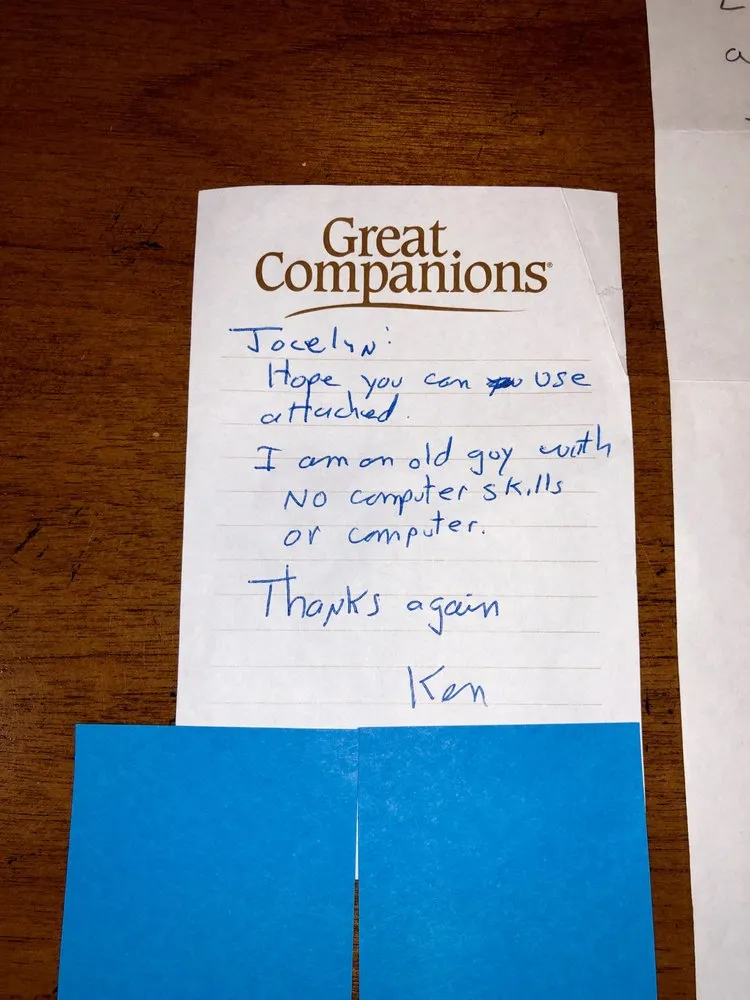 Great
Companions®
Jocelyn:
Hope you can use
attached.
I am an old guy with
No computer skills
or computer.
Thanks again
Ken